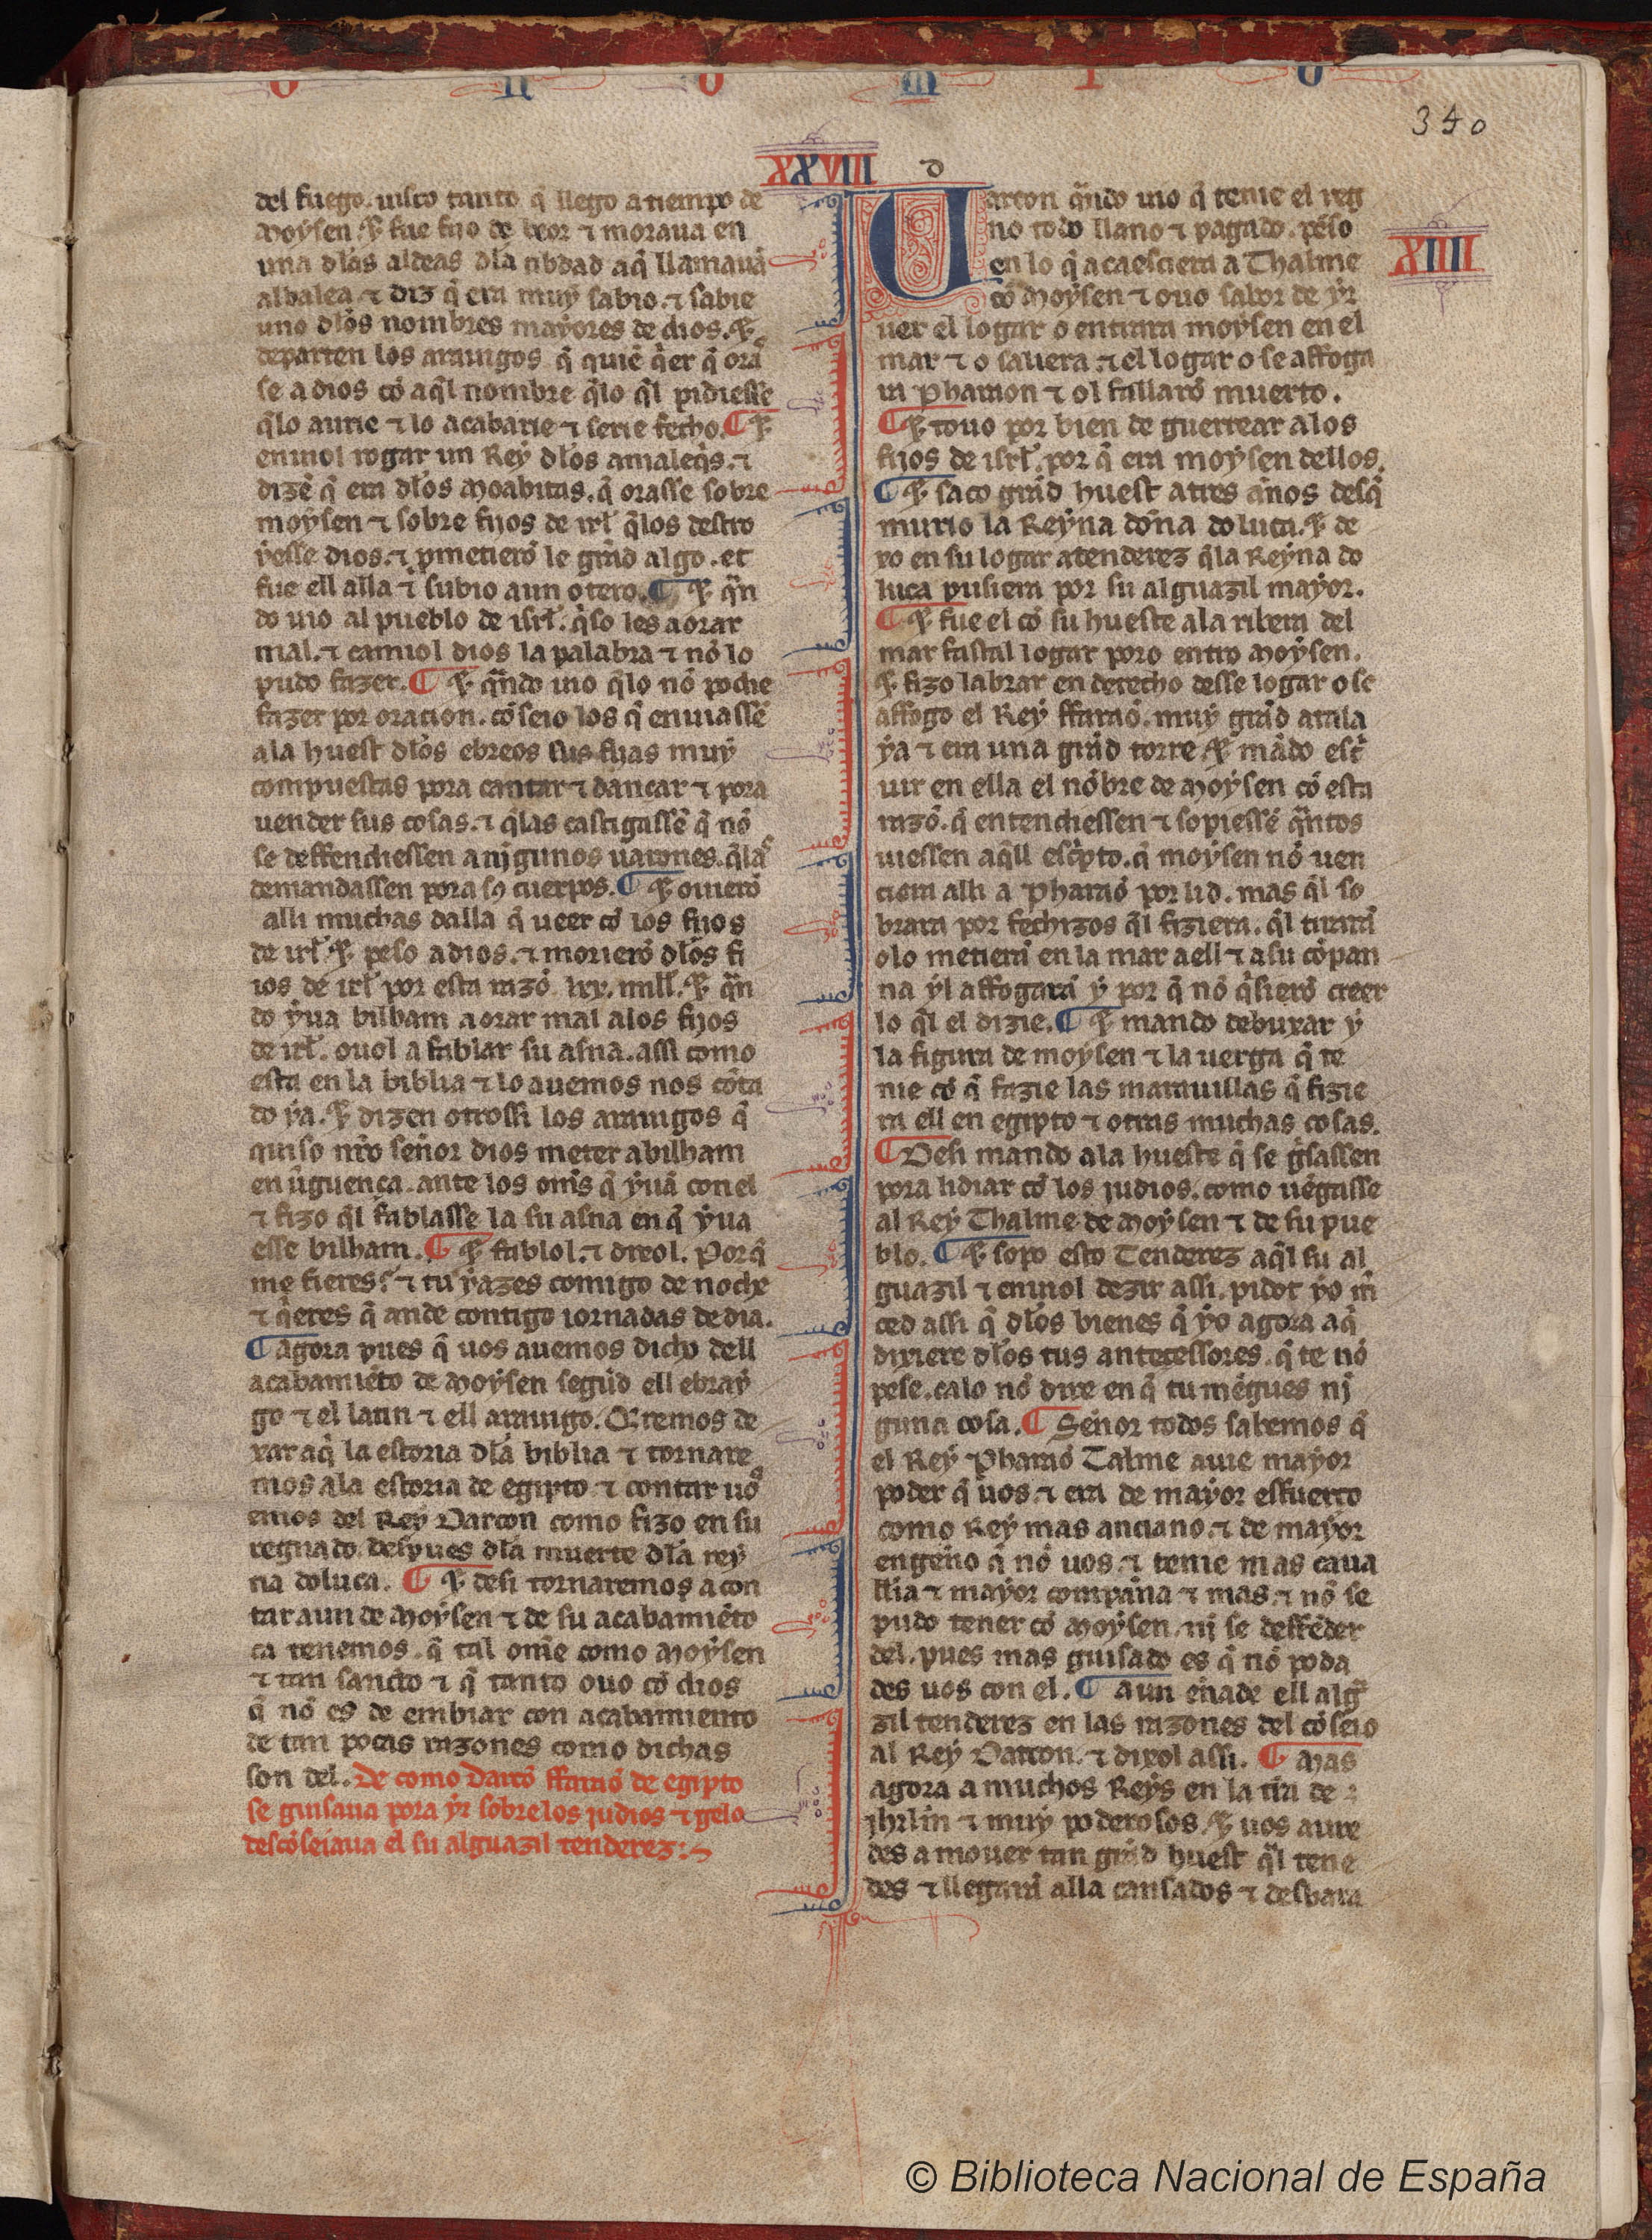 o n o m i o
340
XXVIII
del fuego. uisco tanto q̃ llego a tiempo de
Moysen. ⁊ fue fijo de beor ⁊ moraua en
una dlas aldeas dla cibdad aq̃ llamauã
albalea. ⁊ diz q̃ era muy sabio. ⁊ sabie
uno dlos nombres mayores de dios. ⁊
departen los arauigos q̃ quiẽ q̃er q̃ oras
se a dios cõ aq̃l nombre q̃lo q̃l pidiesse
q̃lo aurie ⁊ lo acabarie ⁊ serie fecho. ¶ ⁊
enuiol rogar un Rey dlos amaleq̃s. ⁊
dizẽ q̃ era dlos Moabitas. q̃ orasse sobre
moysen ⁊ sobre fijos de irł q̃los destro
yesse dios. ⁊ pmetierõ le grãd algo. et
fue ell alla ⁊ subio a un otero. ¶ ⁊ q̃n
do uio al pueblo de isrł. q̃so les a orar
mal. ⁊ camiol dios la palabra ⁊ nõ lo
pudo fazer. ¶ ⁊ q̃ndo uio q̃lo nõ podie
fazer por oracion. cõseio los q̃ enuiassẽ
ala huest dlos ebreos sus fijas muy
compuestas pora cantar ⁊ dançar ⁊ pora
uender sus cosas. ⁊ q̃las castigassẽ q̃ nõ
se deffendiessen a nĩgunos uarones. q̃las
demandassen pora sꝯ cuerpos. ¶ ⁊ ouierõ
alli muchas dalla q̃ ueer cõ los fijos
de irł. ⁊ peso a dios. ⁊ morierõ dlos fi
ios de irł por esta razõ lxx. mill. ⁊ q̃n
do yua bilham a orar mal alos fijos
de irł. ouol a fablar su asna. assi como
esta en la biblia ⁊ lo auemos nos cõta
do ya. ⁊ dizen otrossi los arauigos q̃
quiso nr̃o señor dios meter a bilham
en ũguença. ante los om̃s q̃ yuã con el
⁊ fizo q̃l fablasse la su asna en q̃ yua
esse bilham. ¶ ⁊ fablol. ⁊ dixol. Porq̃
me fieres? ⁊ tu yazes comigo de noche
⁊ q̃eres q̃ ande contigo iornadas de dia.
¶ agora pues q̃ uos auemos dicho dell
acabamiẽto de Moysen segũd ell ebray
go ⁊ el latin ⁊ ell arauigo. Q̃remos de
xar aq̃ la estoria dla biblia ⁊ tornare
mos ala estoria de egipto ⁊ contar uos
emos del Rey Darcon como fizo en su
regnado despues dla muerte dla rey
na doluca. ¶ ⁊ desi tornaremos a con
tar aun de Moysen ⁊ de su acabamiẽto
ca tenemos. q̃ tal om̃e como Moysen
⁊ tan sancto ⁊ q̃ tanto ouo cõ dios
q̃ nõ es de embiar con acabamiento
de tan pocas razones como dichas
son del. De como Darcõ ffaraõ de egipto
se guisaua pora yr sobre los judios ⁊ gelo
descõseiaua el su alguazil tenderez:~
d
Uarcon q̃ndo uio q̃ tenie el reg
no todo llano ⁊ pagado. pẽso
en lo q̃ acaesciera a Thalme
cõ Moysen ⁊ ouo sabor de yr
XIIII
uer el logar o entrara moysen en el
mar ⁊ o saliera. ⁊ el logar o se affoga
ra Pharaon ⁊ ol fallarõ muerto.
¶ ⁊ touo por bien de guerrear alos
fijos de isrł. por q̃ era moysen dellos.
¶ ⁊ saco grãd huest a tres años desq̃
murio la Reyna doña doluca. ⁊ de
xo en su logar a tenderez q̃la Reyna do
luca pusiera por su alguazil mayor.
¶ ⁊ fue el cõ su hueste ala ribera del
mar fastal logar poro entro Moysen.
⁊ fizo labrar en derecho desse logar o se
affogo el Rey ffaraõ. muy grãd atala
ya ⁊ era una grãd torre ⁊ mãdo esc̃
uir en ella el nõbre de Moysen cõ esta
razõ. q̃ entendiessen ⁊ sopiessẽ q̃ntos
uiessen aq̃ll esc̃pto. q̃ moysen nõ uen
ciera alli a Pharaõ por lid. mas q̃l so
brara por fechizos q̃l fiziera. q̃l tirara
olo metiera en la mar a ell ⁊ a su cõpan
na yl affogara y por q̃ nõ q̃sierõ creer
lo q̃l el dizie. ¶ ⁊ mando debuxar y
la figura de moysen ⁊ la uerga q̃ te
nie cõ q̃ fazie las marauillas q̃ fizie
ra ell en egipto ⁊ otras muchas cosas.
¶ Desi mando ala hueste q̃ se g̃sassen
pora lidiar cõ los judios. como uẽgasse
al Rey Thalme de Moysen ⁊ de su pue
blo. ¶ ⁊ sopo esto Tenderez aq̃l su al
guazil ⁊ enuiol dezir assi. pidot yo m̃
ced assi q̃ dlos bienes q̃ yo agora aq̃
dixiere dlos tus antecessores. q̃ te nõ
pese. calo nõ dixe en q̃ tu mẽgues nĩ
guna cosa. ¶ Señor todos sabemos q̃
el Rey Pharaõ Talme auie mayor
poder q̃ uos. ⁊ era de mayor esfuerço
como Rey mas anciano. ⁊ de mayor
engeño q̃ nõ uos. ⁊ tenie mas caua
llia ⁊ mayor compaña ⁊ mas. ⁊ nõ se
pudo tener cõ Moysen. nĩ se deffẽder
del. pues mas guisado es q̃ nõ poda
des uos con el. ¶ aun eñade ell algua
zil tenderez en las razones del cõseio
al Rey Darcon. ⁊ dixol assi. ¶ Mas
agora a muchos Reys en la tr̃a de
jhrlm̃ ⁊ muy poderosos. ⁊ uos aure
des a mouer tan grãd huest q̃l tene
des ⁊ llegarã alla cansados ⁊ desbara
© Biblioteca Nacional de España